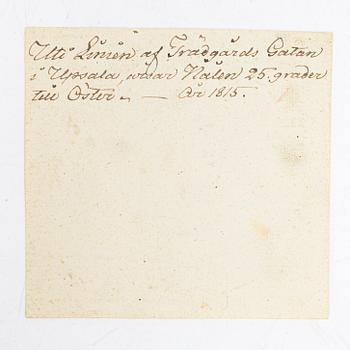 Uti Linien af Trädgårds Gatan
i Upsala, wisar Nålen 25. grader
till Öster. — År 1815.